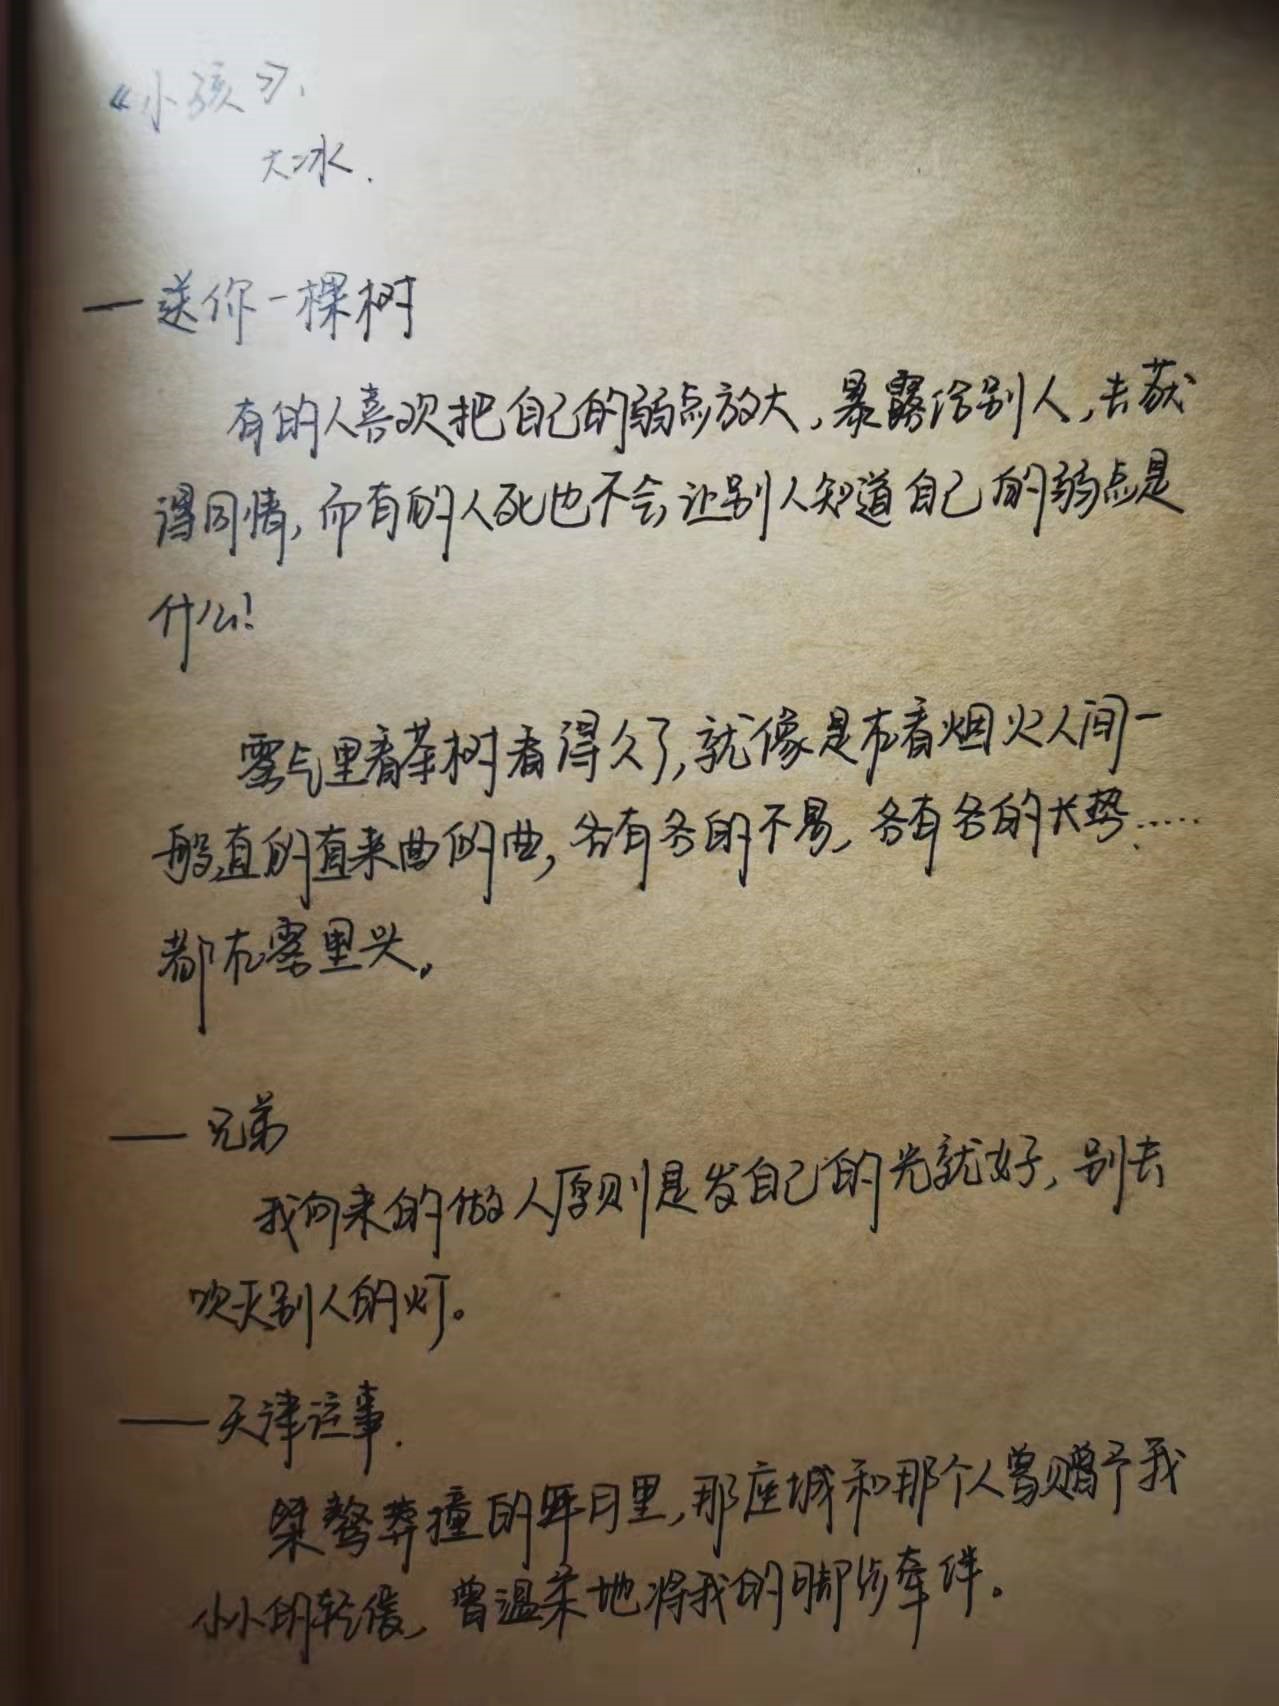 《小孩》.
大冰.
一送你一棵树
有的人喜欢把自己的弱点放大,暴露给别人,去获
得同情,而有的人死也不会让别人知道自己的弱点是
什么!
雾气里看茶树看得久了,就像是在看烟火人间一
般,直的直来曲的曲,各有各的不易,各有各的长势……
都在雾里头。
——兄弟
我向来的做人原则是发自己的光就好,别去
吹灭别人的灯。
——天津往事.
桀骜莽撞的年月里,那座城和那个人曾赠予我
小小的轻缓,曾温柔地将我的脚步牵绊。